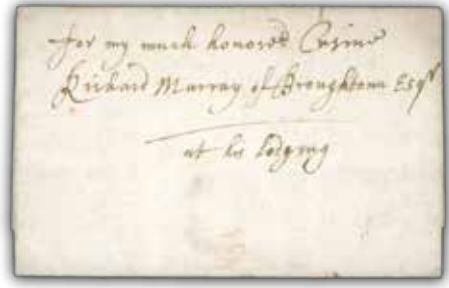 for my much honored Cusine
Richard Murray of Broughtoun Esqr
at his lodging